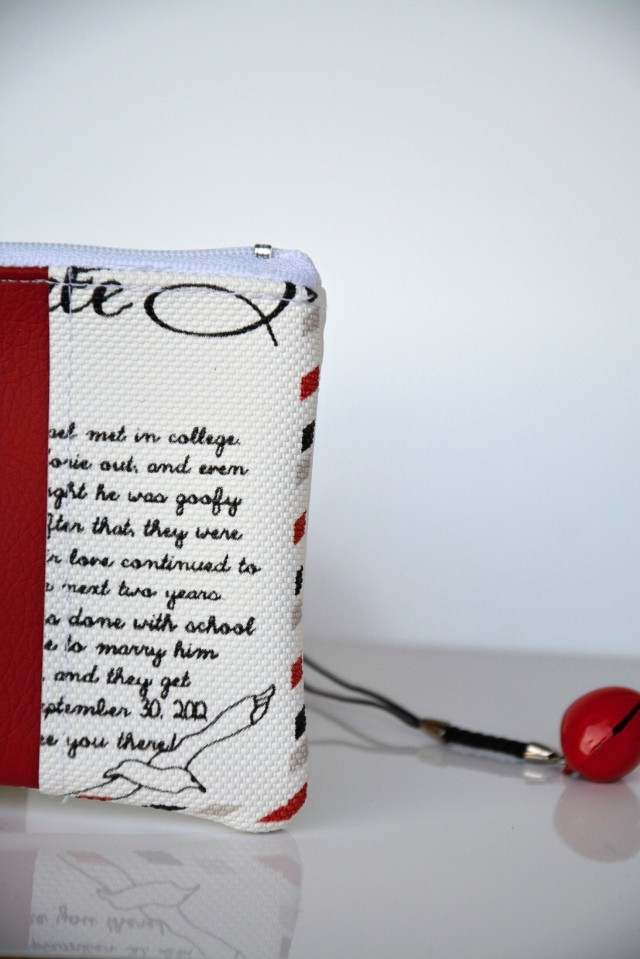 met in college.
out, and even
he was goofy
that, they were
love continued to
next two years.
done with school
to marry him
and they get
September 30, 2012
you there!